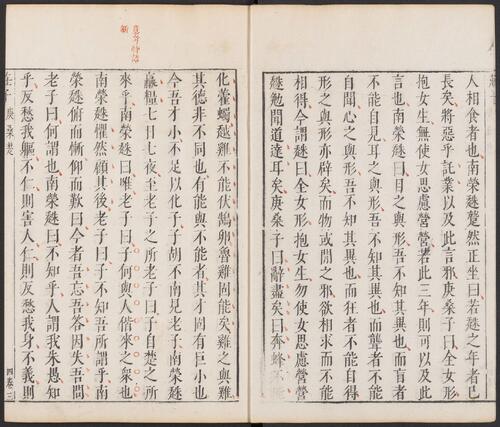 人相食者也南榮趎蹵然正坐曰若趎之年者已
長矣將惡乎託業以及此言邪庚桑子曰全女形
抱女生無使女思慮營營若此三年則可以及此
言也南榮趎曰目之與形吾不知其異也而盲者
不能自見耳之與形吾不知其異也而聾者不能
自聞心之與形吾不知其異也而狂者不能自得
形之與形亦辟矣而物或間之邪欲相求而不能
相得今謂趎曰全女形抱女生勿使女思慮營營
趎勉聞道達耳矣庚桑子曰辭盡矣曰奔蜂不
化藿蠋越雞不能伏鵠卵魯雞固能矣雞之與雞
其德非不同也有能與不能者其才固有巨小也
今吾才小不足以化子子胡不南見老子南榮趎
贏糧七日七夜至老子之所老子曰子自楚之所
來乎南榮趎曰唯老子曰子何與人偕來之衆也
南榮趎懼然顧其後老子曰子不知吾所謂乎南
榮趎俯而慚仰而歎曰今者吾忘吾答因失吾問
老子曰何謂也南榮趎曰不知乎人謂我朱愚知
乎反愁我軀不仁則害人仁則反愁我身不義則
莊子 庚桑楚 四卷三